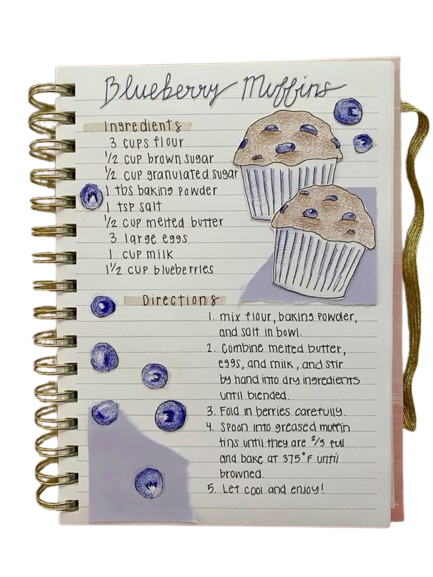 Blueberry Muffins
Ingredients
3 cups flour
1/2 cup brown sugar
1/2 cup granulated sugar
1 tbs baking powder
1 tsp salt
1/2 cup melted butter
3 large eggs
1 cup milk
1 1/2 cup blueberries
Directions
1. mix flour, baking powder,
and salt in bowl.
2. Combine melted butter,
eggs, and milk, and stir
by hand into dry ingredients
until blended.
3. Fold in berries carefully.
4. Spoon into greased muffin
tins until they are 2/3 full
and bake at 375°F until
browned.
5. Let cool and enjoy!